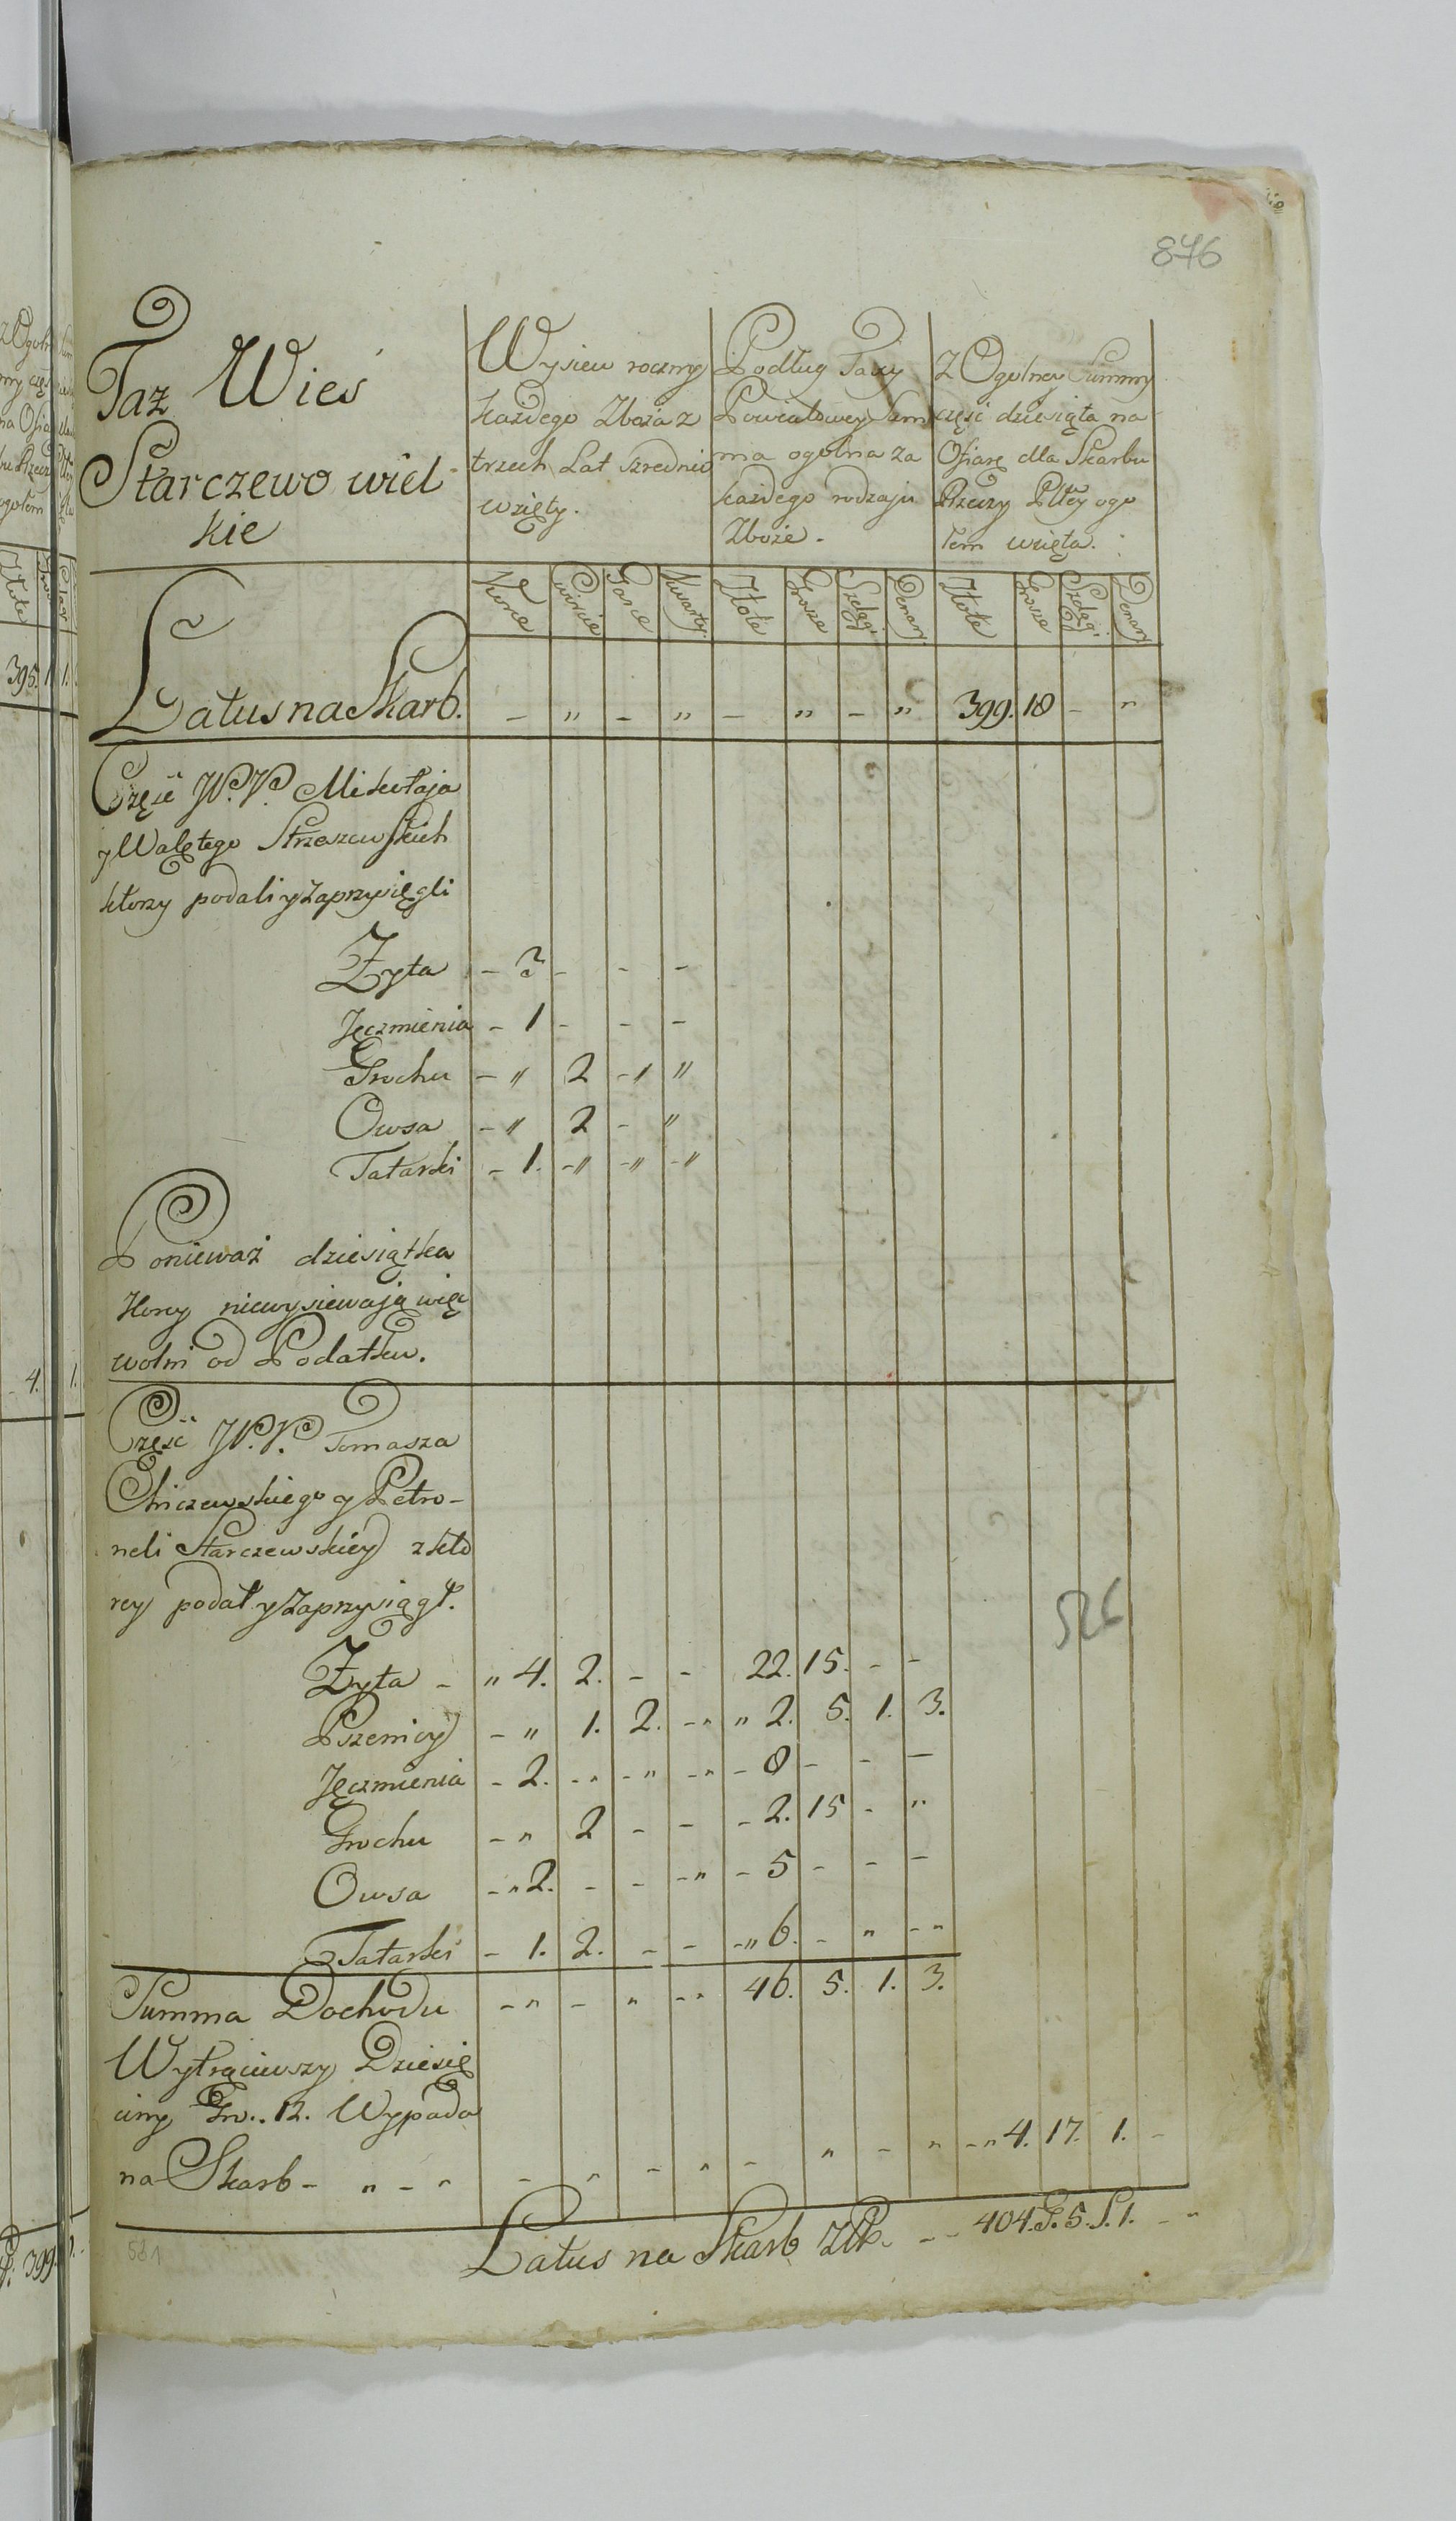 876
Taż Wieś
Starczewo wiel-
kie
Wysiew roczny
każdego Zboża z
trzech Lat szrednio
wzięty.
Podług Taxy
Powiatowey Sum
ma ogolna za
każdego rodzaju
Zboże.
Z Ogolney Summy
część dziesiąta na
Ofiarę dla Skarbu
Rzeczy Pltey ogo
łem wzięta.
Korce Cwircie Garce Kwarty Złote Grosze Szelągi Denary Złote Grosze Szelągi Denary
Latus na Skarb. - " - " - " - " 399. 18 - "
Część W. W. Mikołaja
y Walętego Strzeszewskich
ktorzy podali y zaprzysięgli
Zyta - 3 - - -
Jęczmienia - 1 - - -
Grochu - " 2 - " "
Owsa - " 2 - "
Tatarki - 1. - " - " - "
Ponieważ dziesiątka
Korcy niewysiewaią więc
wolni od Podatku.
Część W. W. Tomasza
y Petro-
neli Starczewskiey z kto
rey podał y zaprzysiągł.
Zyta - " 4. 2. - - 22. 15. - -
Pszenicy - " 1. 2. - " " 2. 5. 1. 3.
Jęczmienia - 2. - " - " - " - 8 - - -
Grochu - " 2 - - - 2. 15 - "
Owsa - " 2. - - - " - 5 - - -
Tatarki - 1. 2. - - - " 6. - " - "
Summa Dochodu - " - " - " 46. 5. 1. 3.
Wytrąciwszy Dziesię
ciny Gr.. 12. Wypada
na Skarb - " - " - " - " - " - " - " 4. 17. 1. -
Latus na Skarb Złł. - - 404. G. 5. S. 1. - "
526
581